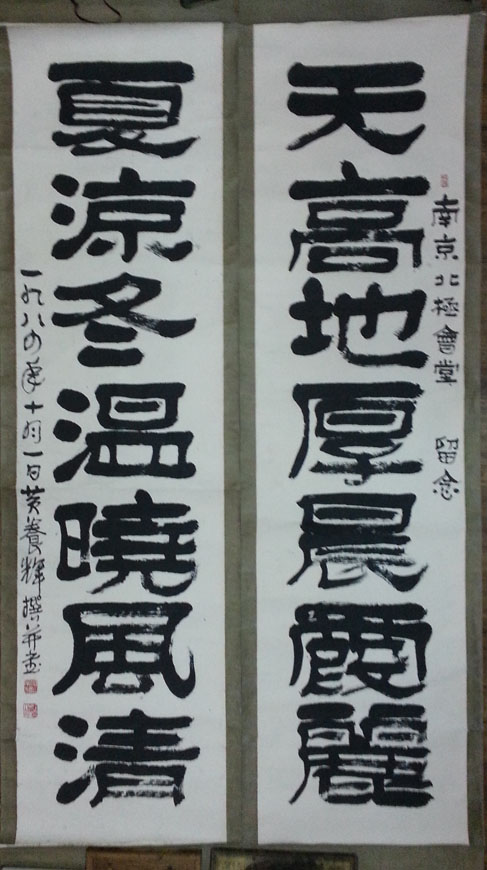 南京北極會堂 留念
天高地厚晨霞麗
夏涼冬温曉風清
一九八四年十月一日黃養輝撰并書